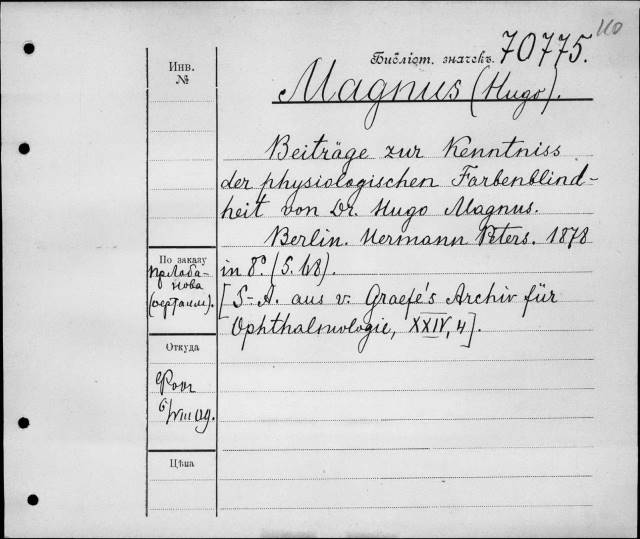 110
Библіот. значекъ 70775.
Инв.
№
Magnus (Hugo).
Beiträge zur Kenntniss
der physiologischen Farbenblind-
heit von Dr. Hugo Magnus.
Berlin. Hermann Peters. 1878
in 8°. (S. 68).
[S-A. aus v. Graefe's Archiv für
Ophthalmologie, XXIV, 4].
По заказу
нова
Откуда
6/VIII 09.
Цѣна